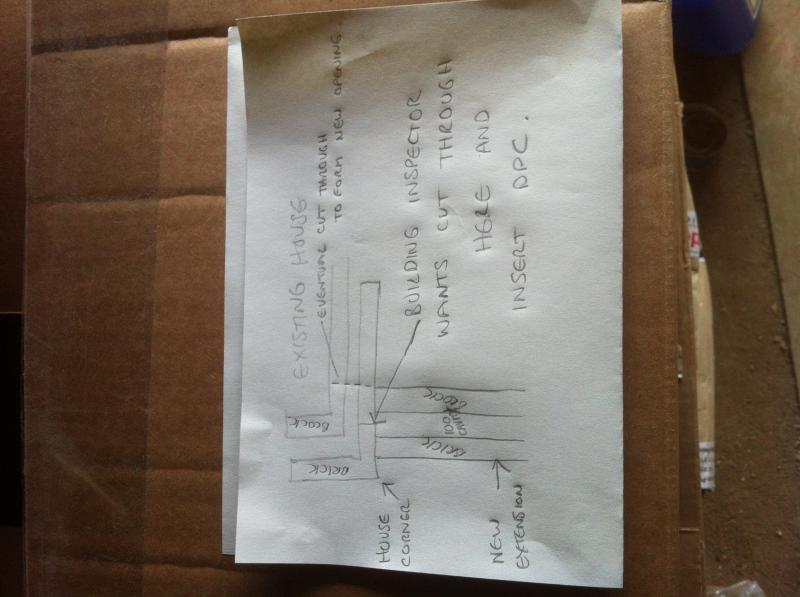 EXISTING HOUSE
EVENTUAL CUT THROUGH
TO FORM NEW OPENING.
BUILDING INSPECTOR
WANTS CUT THROUGH
HERE AND
INSERT DPC.
BLOCK
BRICK
BLOCK
100
CAVITY
BRICK
HOUSE
CORNER
NEW
EXTENSION